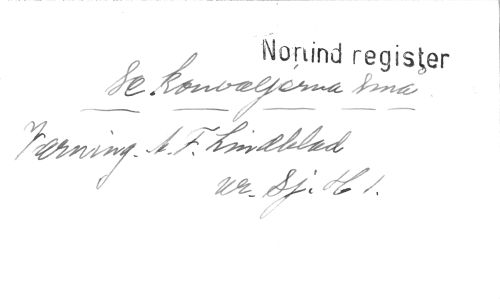 Norlind register
Se konvaljerna små
Varning. A. F. Lindblad
ur. Sj. H 1.